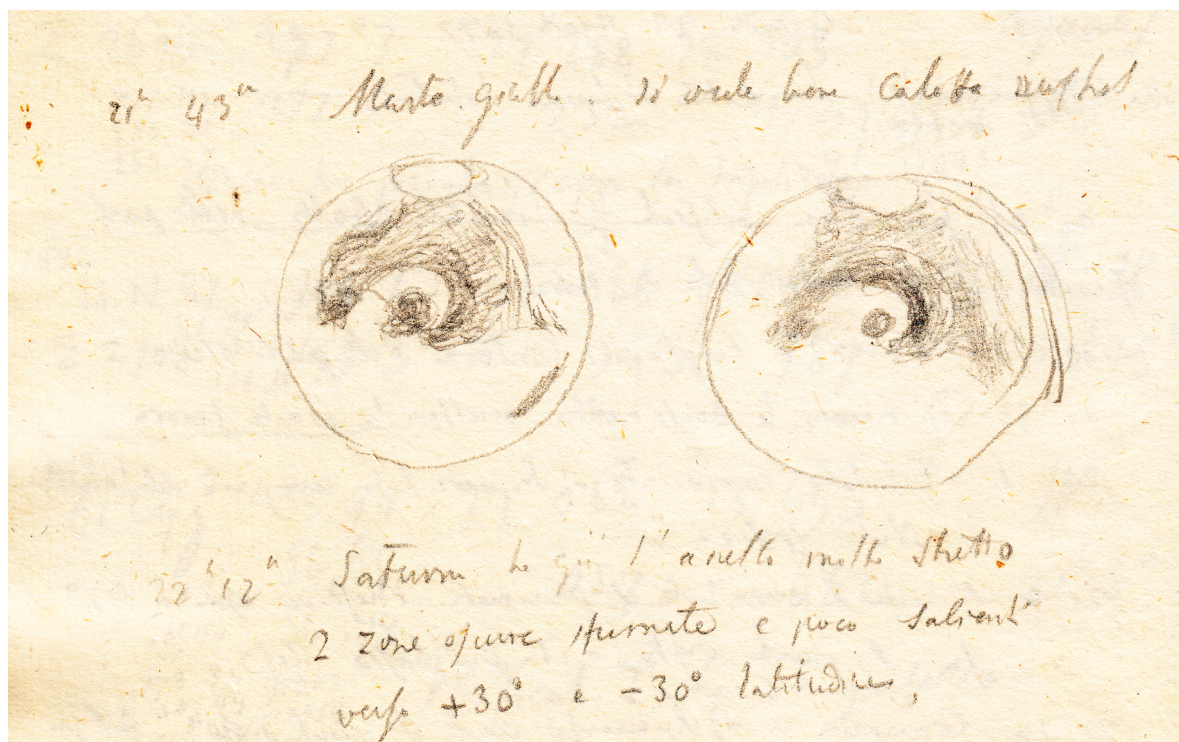 21h 43m Marte giallo. Si vede bene calotta
22h 12m Saturno ha già l'anello molto stretto
2 zone oscure sfumate e poco salienti
verso +30° e -30° latitudine,